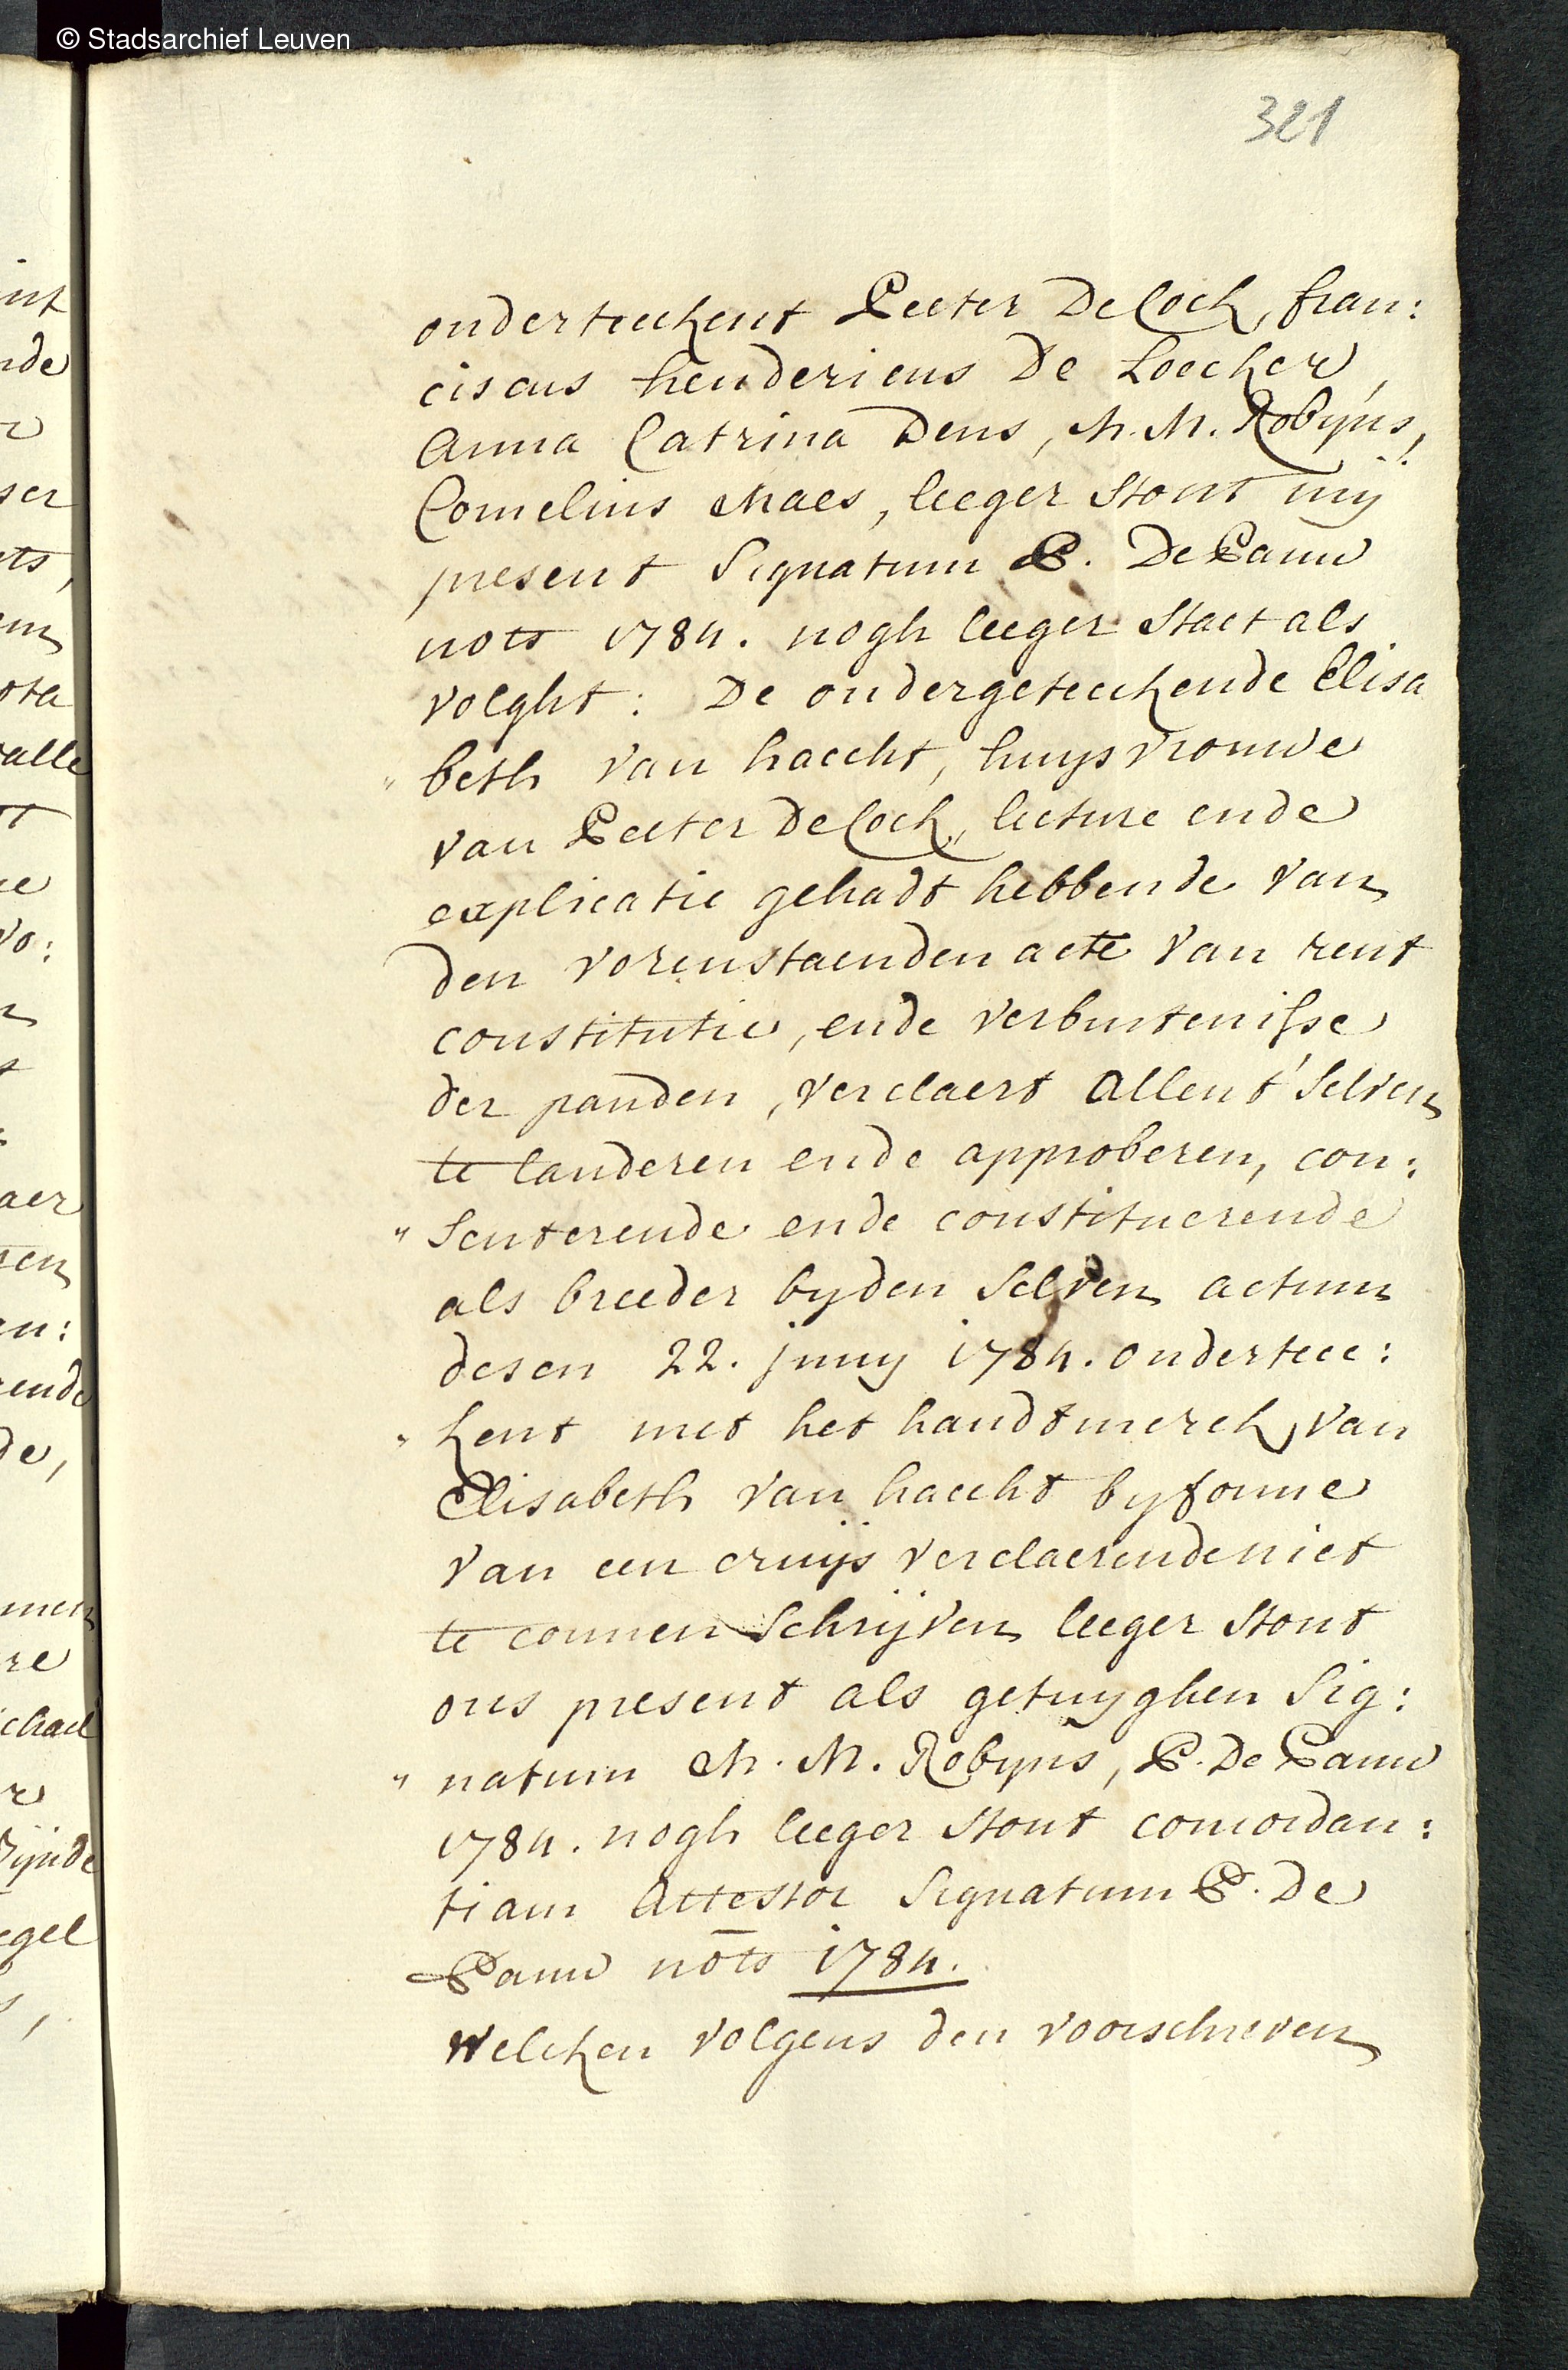 © Stadsarchief Leuven
321
onderteekent Peeter De Cock, fran:
ciscus hendericus De Loecker,
Anna Catrina Dens, M. M. Robÿns,
Cornelius Maes, leeger stont mij
present Signatum P. De Pauw
nots 1784. nogh leeger staet als
volght: De ondergeteekende Elisa
" beth van haecht, huysvrouwe
van Peeter De Cock, lecture ende
explicatie gehadt hebbende van
den vorenstaenden acte van rent
constitutie, ende verbintenisse
der panden, verclaert allen t'selven
te lauderen ende approberen, con:
" senterende ende constituerende
als breeder byden selven actum
desen 22. juny 1784. ondertee:
" kent met het handtmerck van
Elisabeth van haecht by forme
van een cruÿs verclaerende niet
te connen schrijven leeger stont
ons present als getuyghen Sig:
" natum M. M. Robyns, P. De Pauw
1784. nogh leeger stont concordan:
tiam Attestor Signatum P. De
Pauw nots 1784.
Welcken volgens den voorschreven
int
nde
ser
ets,
ota
alle
vo:
aer
ren
en:
rende
de,
men
re
chael
zijnde
egel